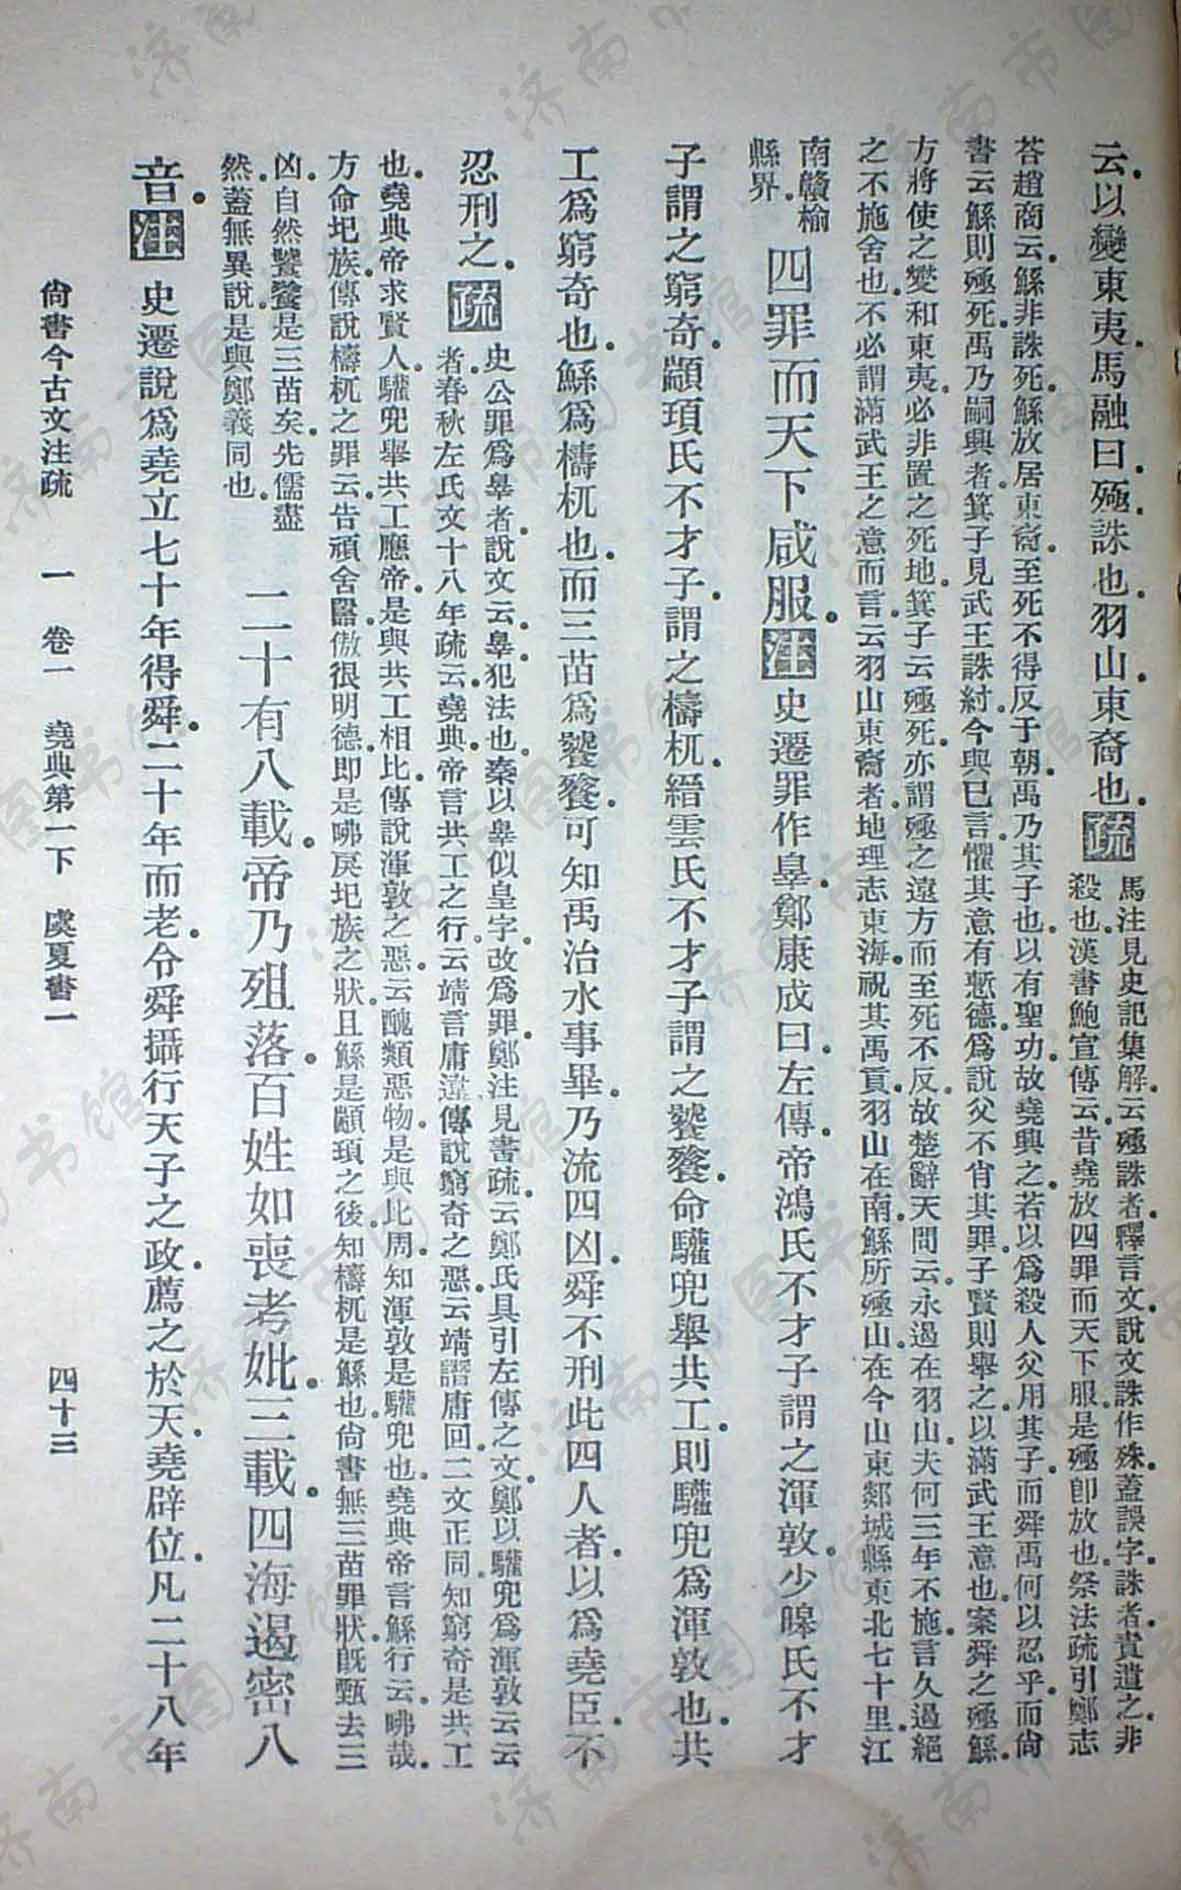 云以變東夷馬融曰殛誅也羽山東裔也疏
馬注見史記集解云殛誅者釋言文說文誅作殊蓋誤字誅者責遣之非
殺也漢書鮑宣傳云昔堯放四罪而天下服是殛即放也祭法疏引鄭志
荅趙商云鯀非誅死鯀放居東裔至死不得反于朝禹乃其子也以有聖功故堯興之若以爲殺人父用其子而舜禹何以忍乎而尙
書云鯀則殛死禹乃嗣興者箕子見武王誅紂今與已言懼其意有慙德爲說父不肯其罪子賢則舉之以滿武王意也案舜之殛鯀
方將使之變和東夷必非置之死地箕子云殛死亦謂殛之遠方而至死不反故楚辭天問云永遏在羽山夫何三年不施言久遏絕
之不施舍也不必謂滿武王之意而言云羽山東裔者地理志東海祝其禹貢羽山在南鯀所殛山在今山東郯城縣東北七十里江
南贛榆
縣界
四罪而天下咸服注史遷罪作辠鄭康成曰左傳帝鴻氏不才子謂之渾敦少皞氏不才
子謂之窮奇顓頊氏不才子謂之檮杌縉雲氏不才子謂之饕餮命驩兜舉共工則驩兜爲渾敦也共
工爲窮奇也鯀爲檮杌也而三苗爲饕餮可知禹治水事畢乃流四凶舜不刑此四人者以爲堯臣不
忍刑之疏
史公罪爲辠者說文云辠犯法也秦以辠似皇字改爲罪鄭注見書疏云鄭氏具引左傳之文鄭以驩兜爲渾敦云云
者春秋左氏文十八年疏云堯典帝言共工之行云靖言庸違傳說窮奇之惡云靖譖庸回二文正同知窮奇是共工
也堯典帝求賢人驩兜舉共工應帝是與共工相比傳說渾敦之惡云醜類惡物是與比周知渾敦是驩兜也堯典帝言鯀行云咈哉
方命圮族傳說檮杌之罪云告頑舍嚚傲很明德即是咈戾圮族之狀且鯀是顓頊之後知檮杌是鯀也尙書無三苗罪狀旣甄去三
凶自然饕餮是三苗矣先儒盡
然蓋無異說是與鄭義同也
二十有八載帝乃殂落百姓如喪考妣三載四海遏密八
音注史遷說爲堯立七十年得舜二十年而老令舜攝行天子之政薦之於天堯辟位凡二十八年
尙書今古文注疏　一　卷一　堯典第一下　虞夏書一　四十三
济南市图书馆